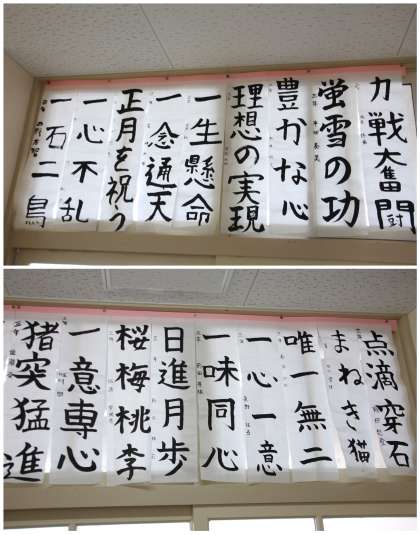 力戦奮闘
蛍雪の功
豊かな心
理想の実現
一生懸命
一念通天
正月を祝う
一心不乱
一石二鳥
点滴穿石
まねき猫
唯一無二
一心一意
一味同心
日進月歩
桜梅桃李
一意専心
猪突猛進